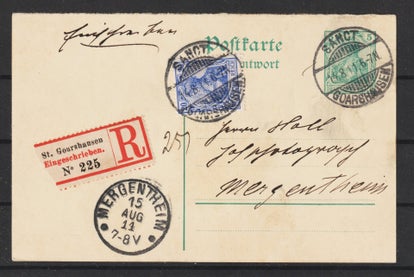 Einschreiben.
Postkarte
ntwort
SANCT
GOARSHAUSEN
SANCT
GOARSHAUSEN
5
St. Goarshausen
Eingeschrieben.
No 225
R
251
Herrn Holl
Hofphotograph
Mergentheim
MERGENTHEIM
15
AUG
11
7-8V